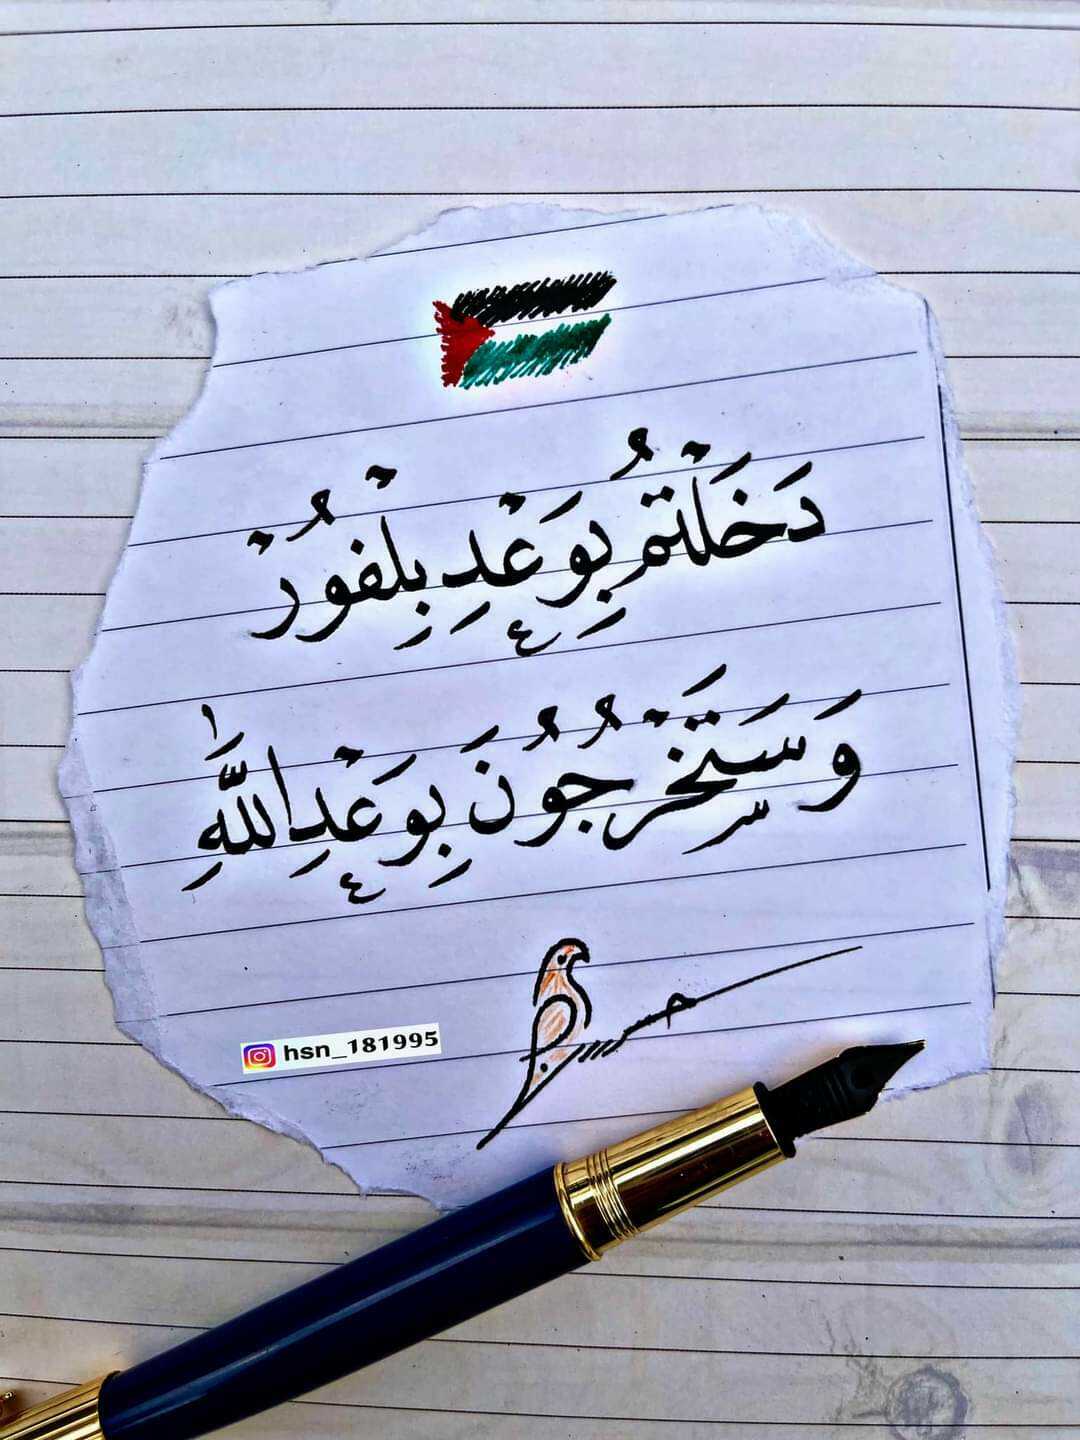 دَخَلْتُمْ بِوَعْدِ بِلْفُورْ
وَسَتَخْرُجُونَ بِوَعْدِ اللَّهِ
hsn_181995